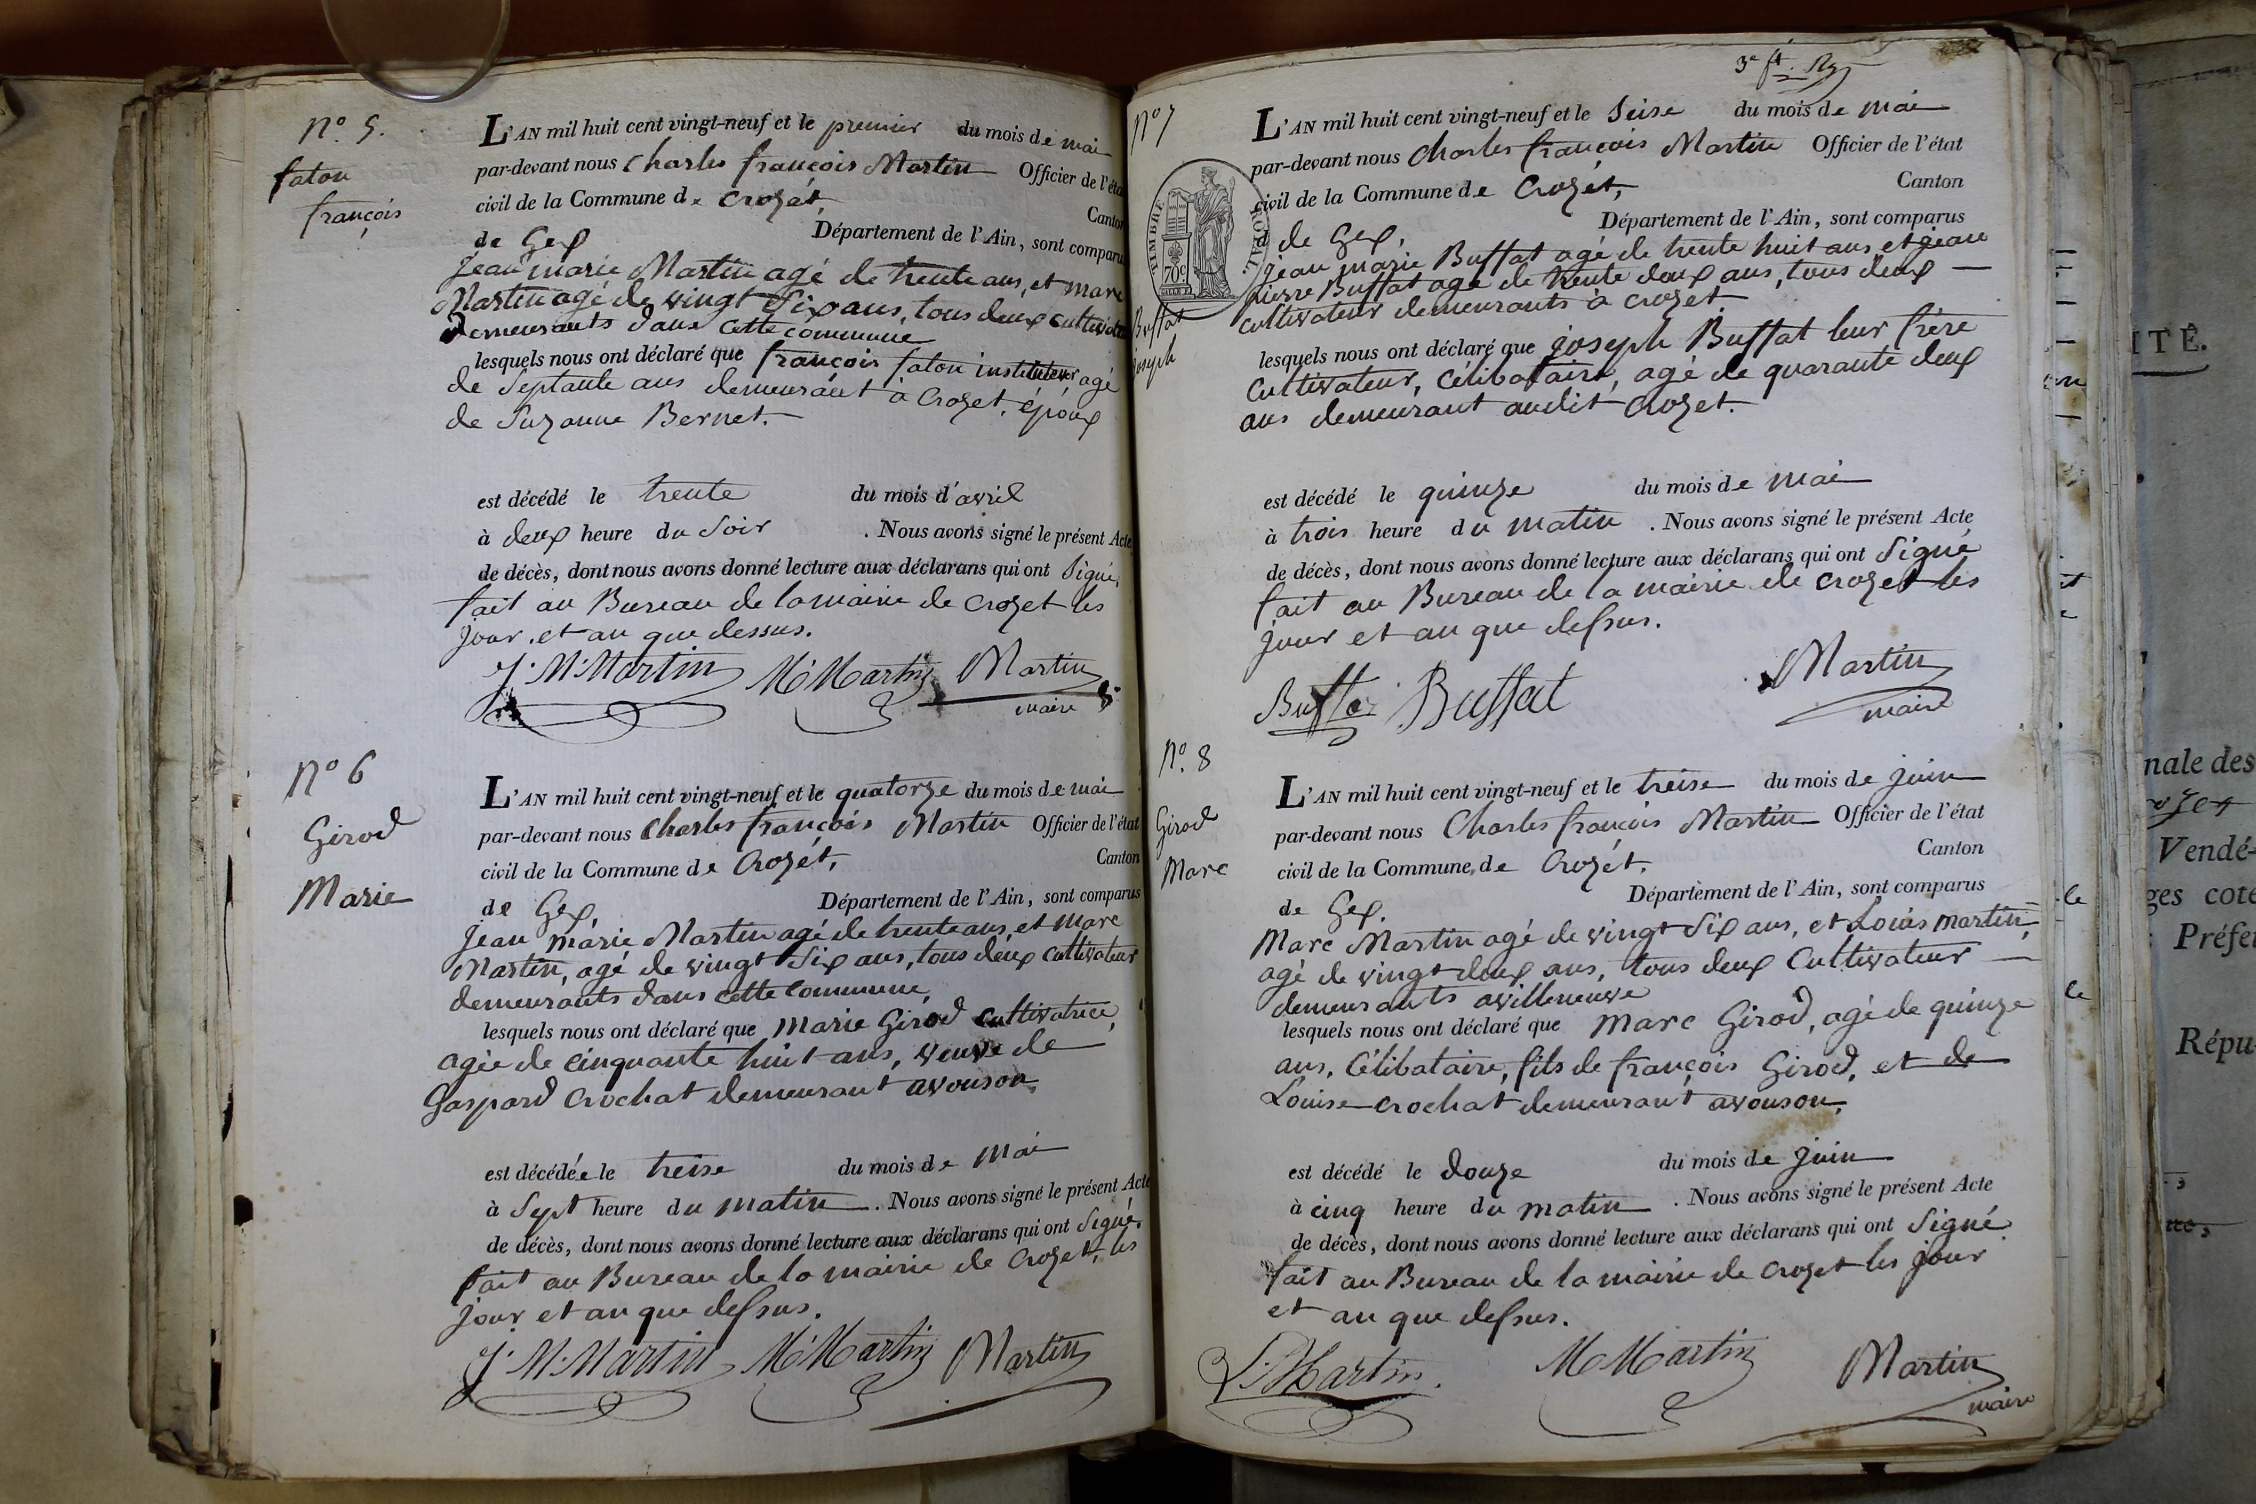 N.° 5.
faton
françois
L'AN mil huit cent vingt-neuf et le premier du mois de mai
par-devant nous Charles françois Martin Officier de l'éta
civil de la Commune de Crozét,
Canton
de Gex Département de l'Ain, sont comparu
jean marie Martin agé de trente ans, et marc
Martin agé de vingt Six ans, tous deux cultivate
demeurants dans cette commune
lesquels nous ont déclaré que françois faton instituteur agé
de Septante ans demeurant à Crozet, époux
de Suzanne Bernet.
est décédé le trente du mois d'avril
à deux heure du Soir . Nous avons signé le présent Acte
de décès, dont nous avons donné lecture aux déclarans qui ont Signé,
fait au Bureau de la mairie de Crozet les
jour, et an que dessus.
J. M. Martin M. Martin Martin
maire
N.° 6
Girod
Marie
L'AN mil huit cent vingt-neuf et le quatorze du mois de mai
par-devant nous Charles françois Martin Officier de l'état
civil de la Commune de Crozét,
Canton
de Gex, Département de l'Ain, sont comparus
jean marie Martin agé de trente ans, et Marc
Martin, agé de vingt Six ans, tous deux Cultivateur
demeurants dans cette Commune,
lesquels nous ont déclaré que Marie Girod cultivatrice,
agée de cinquante huit ans, veuve de
Gaspard Crochat demeurant avouson,
est décédée le treise du mois de Mai
à Sept heure du matin . Nous avons signé le présent Acte
de décès, dont nous avons donné lecture aux déclarans qui ont Signé,
fait au Bureau de la mairie de Crozet, les
jour et an que dessus.
J. M. Martin M. Martin Martin
3.e f.t
N.° 7
TIMBRE ROYAL.
70c
Buffat
joseph
L'AN mil huit cent vingt-neuf et le Seise du mois de mai
par-devant nous Charles françois Martin Officier de l'état
civil de la Commune de Crozét,
Canton
de Gex, Département de l'Ain, sont comparus
jean marie Buffat agé de trente huit ans, et jean
pierre Buffat agé de trente deux ans, tous deux
cultivateur demeurants à Crozet
lesquels nous ont déclaré que joseph Buffat leur frère
Cultivateur, Célibataire, agé de quarante deux
ans demeurant audit Crozet.
est décédé le quinze du mois de mai
à trois heure du matin . Nous avons signé le présent Acte
de décès, dont nous avons donné lecture aux déclarans qui ont Signé
fait au Bureau de la mairie de Crozet les
jour et an que dessus.
Buffat Buffat Martin
maire
N.° 8
Girod
Marc
L'AN mil huit cent vingt-neuf et le treise du mois de juin
par-devant nous Charles françois Martin Officier de l'état
civil de la Commune de Crozét,
Canton
de Gex, Département de l'Ain, sont comparus
Marc Martin agé de vingt Six ans, et Louis Martin,
agé de vingt deux ans, tous deux Cultivateur
demeurants avilleneuve
lesquels nous ont déclaré que Marc Girod, agé de quinze
ans, Célibataire, fils de françois Girod, et de
Louise Crochat demeurant avouson,
est décédé le douze du mois de juin
à cinq heure du matin . Nous avons signé le présent Acte
de décès, dont nous avons donné lecture aux déclarans qui ont Signé
fait au Bureau de la mairie de Crozet les jour
et an que dessus.
L. Martin. M. Martin Martin
maire
ITÉ.
nale des
Vendé-
ges coté
Préfe
Répu-